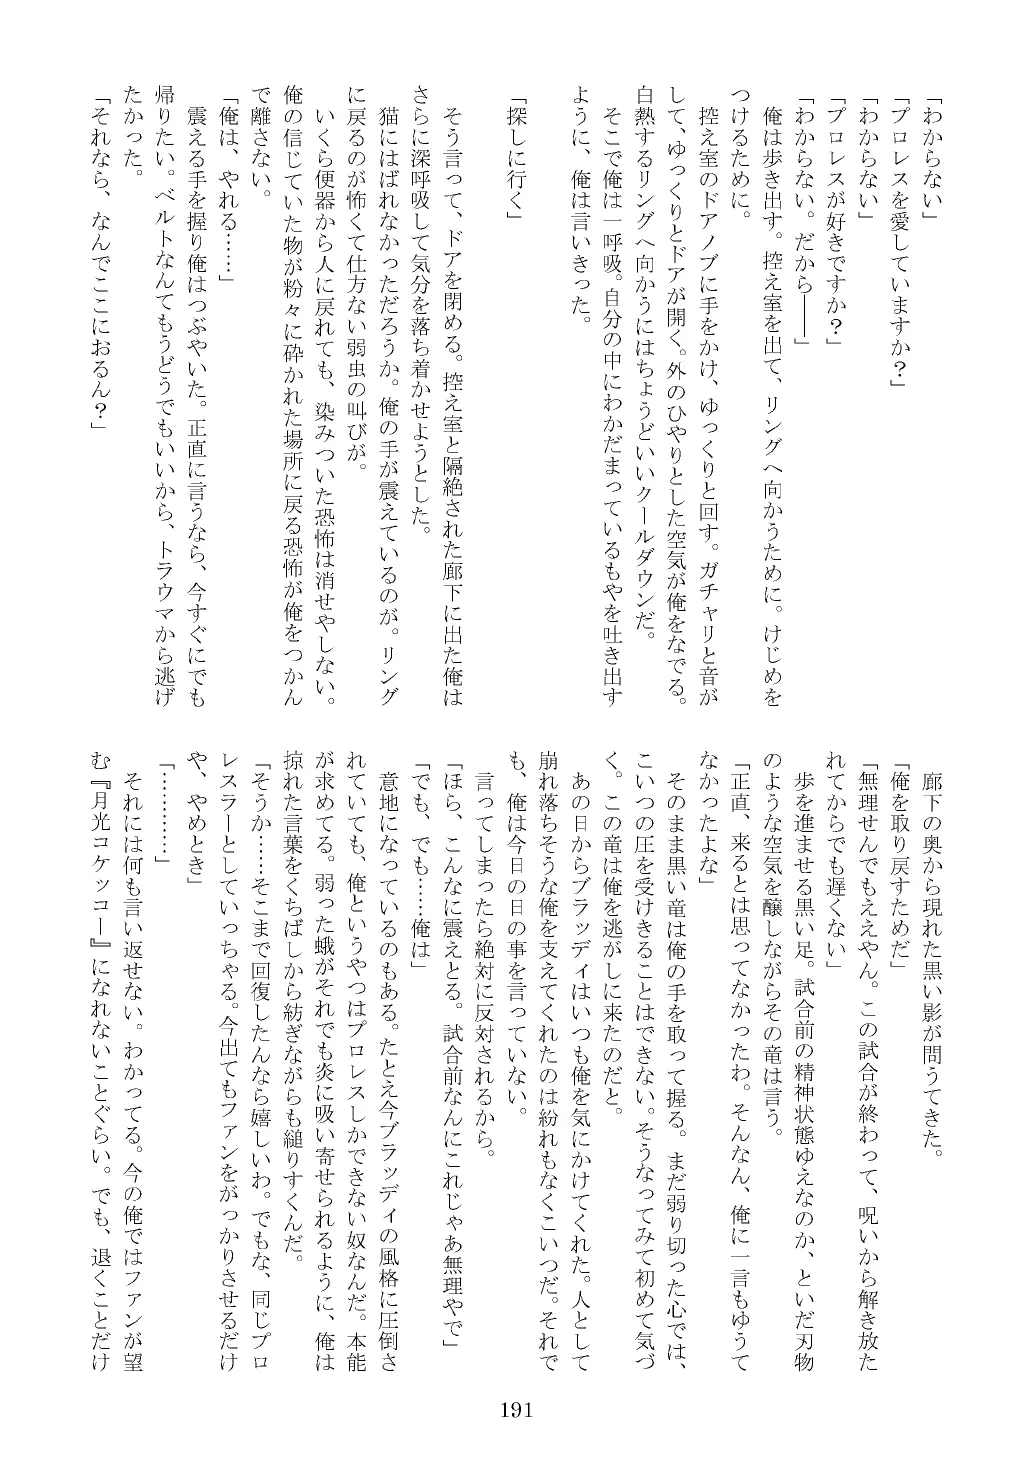 「わからない」
「プロレスを愛していますか？」
「わからない」
「プロレスが好きですか？」
「わからない。だから――」
　俺は歩き出す。控え室を出て、リングへ向かうために。けじめを
つけるために。
　控え室のドアノブに手をかけ、ゆっくりと回す。ガチャリと音が
して、ゆっくりとドアが開く。外のひやりとした空気が俺をなでる。
白熱するリングへ向かうにはちょうどいいクールダウンだ。
　そこで俺は一呼吸。自分の中にわかだまっているもやを吐き出す
ように、俺は言いきった。
「探しに行く」
　そう言って、ドアを閉める。控え室と隔絶された廊下に出た俺は
さらに深呼吸して気分を落ち着かせようとした。
　猫にはばれなかっただろうか。俺の手が震えているのが。リング
に戻るのが怖くて仕方ない弱虫の叫びが。
　いくら便器から人に戻れても、染みついた恐怖は消せやしない。
俺の信じていた物が粉々に砕かれた場所に戻る恐怖が俺をつかん
で離さない。
「俺は、やれる……」
　震える手を握り俺はつぶやいた。正直に言うなら、今すぐにでも
帰りたい。ベルトなんてもうどうでもいいから、トラウマから逃げ
たかった。
「それなら、なんでここにおるん？」
　廊下の奥から現れた黒い影が問うてきた。
「俺を取り戻すためだ」
「無理せんでもええやん。この試合が終わって、呪いから解き放た
れてからでも遅くない」
　歩を進ませる黒い足。試合前の精神状態ゆえなのか、といだ刃物
のような空気を醸しながらその竜は言う。
「正直、来るとは思ってなかったわ。そんなん、俺に一言もゆうて
なかったよな」
　そのまま黒い竜は俺の手を取って握る。まだ弱り切った心では、
こいつの圧を受けきることはできない。そうなってみて初めて気づ
く。この竜は俺を逃がしに来たのだと。
　あの日からブラッディはいつも俺を気にかけてくれた。人として
崩れ落ちそうな俺を支えてくれたのは紛れもなくこいつだ。それで
も、俺は今日の日の事を言っていない。
　言ってしまったら絶対に反対されるから。
「ほら、こんなに震えとる。試合前なんにこれじゃあ無理やで」
「でも、でも……俺は」
　意地になっているのもある。たとえ今ブラッディの風格に圧倒さ
れていても、俺というやつはプロレスしかできない奴なんだ。本能
が求めてる。弱った蛾がそれでも炎に吸い寄せられるように、俺は
掠れた言葉をくちばしから紡ぎながらも縋りすくんだ。
「そうか……そこまで回復したんなら嬉しいわ。でもな、同じプロ
レスラーとしていっちゃる。今出てもファンをがっかりさせるだけ
や、やめとき」
「…………」
　それには何も言い返せない。わかってる。今の俺ではファンが望
む『月光コケッコー』になれないことぐらい。でも、退くことだけ
191